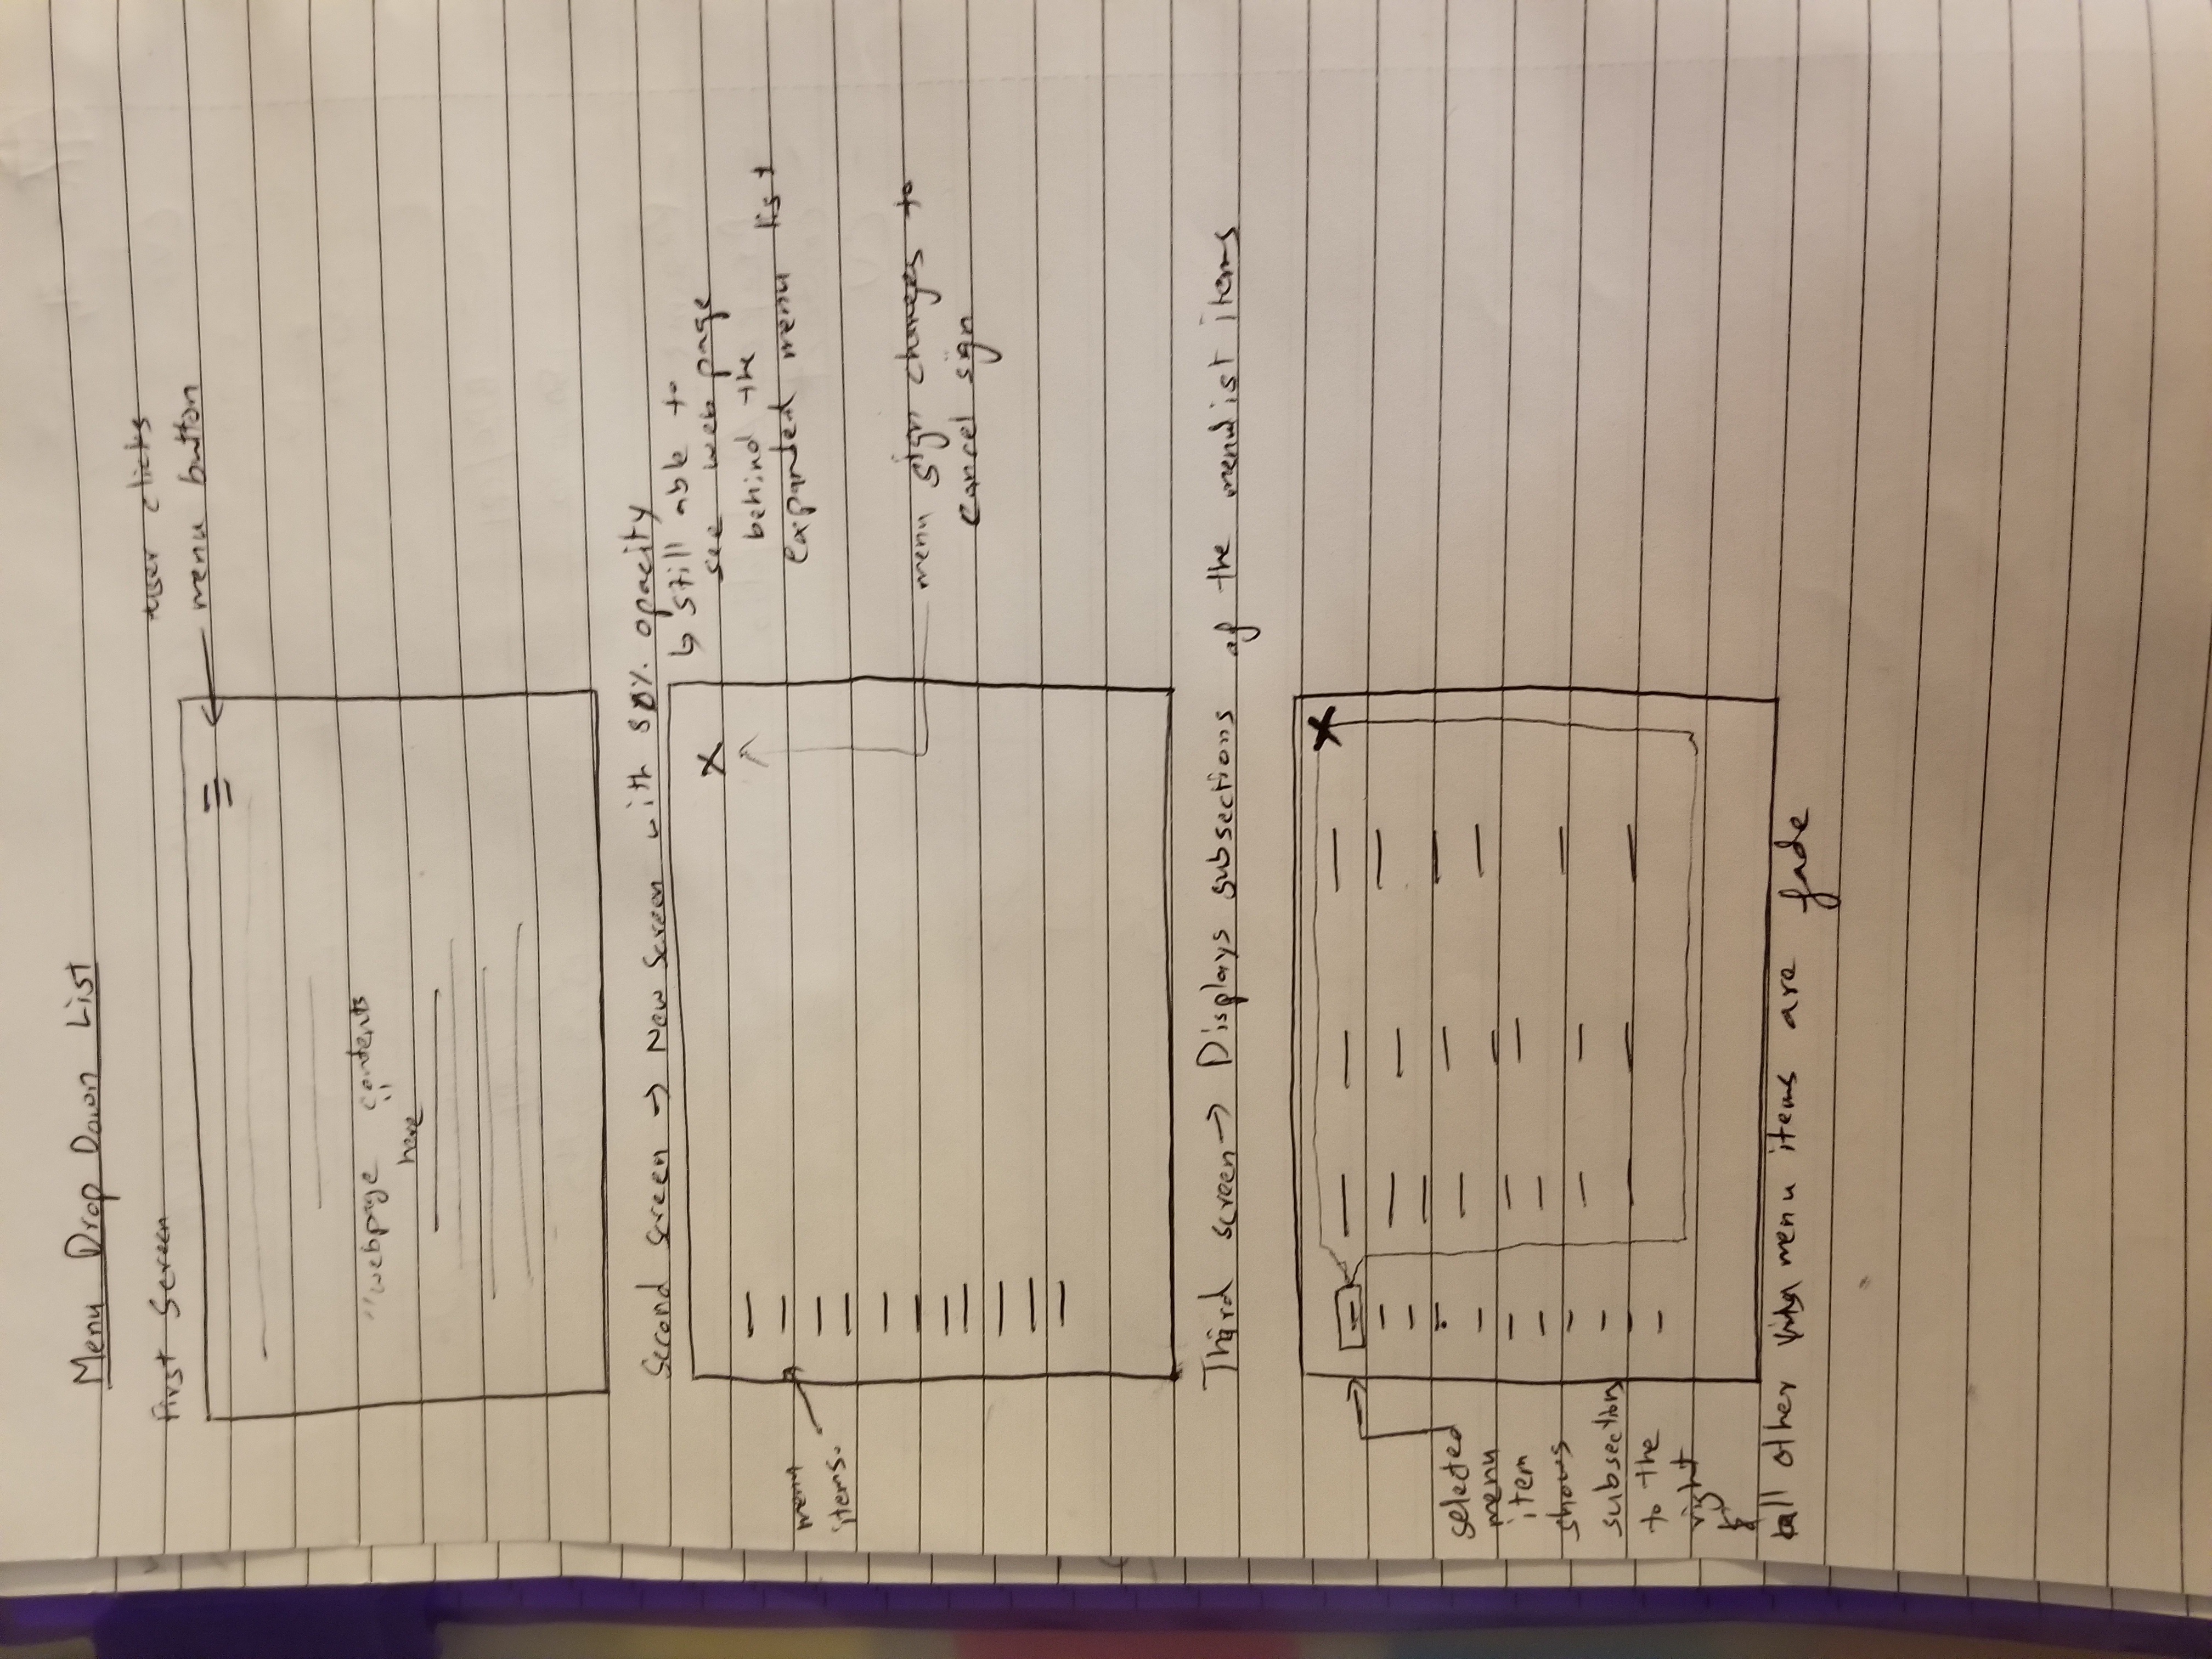 Menu Drop Down List
First Screen
user clicks
menu button
"webpage contents
here"
Second screen → New Screen with % opacity
↳ still able to
see web page
behind the
expanded menu list
menu
items.
menu sign changes to
cancel sign
Third screen → Displays subsections of the menulist items
selected
menu
item
shows
subsection
to the
right
&
all other menu items are fade